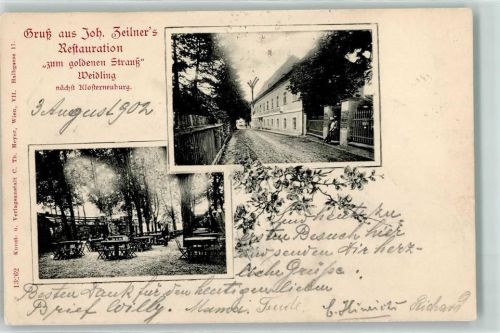 Gruß aus Joh. Zeilner's
Restauration
„zum goldenen Strauß"
Weidling
nächst Klosterneuburg.
3 August 902
Kunst- u. Verlagsanstalt C. Th. Meyer, Wien, VII. Halbgasse 11.
13262
Sind heute zu
besten Besuch hier
und senden Dir herz-
liche Grüße.
Besten Dank für den heutigen lieben
Brief Willy. Mama
Richard